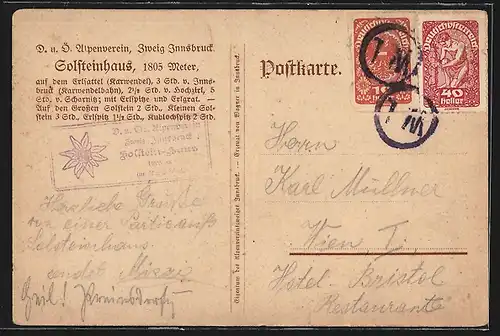 D. u. Ö. Alpenverein, Zweig Innsbruck.
Solsteinhaus, 1805 Meter,
auf dem Erlsattel (Karwendel), 3 Std. v. Inns-
bruck (Karwendelbahn), 2½ Std. v. Hochzirl, 5
Std. v. Scharnitz; mit Erlspitze und Erlgrat. —
Auf den Großen Solstein 2 Std., Kleinen Sol-
stein 3 Std. Erlspitz 1½ Std. Kuhlochspitz 2 Std.
D. u. Oe. Alpenverein
Zweig Innsbruck
Solstein-Haus
Herzliche Grüße
von einer Partie aufs
Solsteinhaus
sendet
Heil!
Eigentum des Alpenvereinszweiges Innsbruck. — Erzeugt von Wagner in Innsbruck.
Postkarte.
Deutschösterreich
Deutschösterreich
40
Heller
Herrn
Karl Müllner
Wien I.
Hotel Bristol
Restaurant